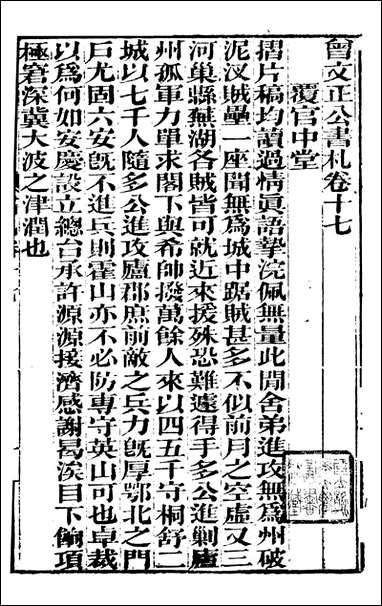 曾文正公書札卷十七
覆官中堂
摺片稿均讀過情眞語摯浣佩無量此間舍弟進攻無爲州破
泥汊賊壘一座聞無爲城中踞賊甚多不似前月之空虛又三
河巢縣蕪湖各賊皆可就近來援殊恐難遽得手多公進剿廬
州孤軍力單求閣下與希帥撥萬餘人來以四五千守桐舒二
城以七千人隨多公進攻廬郡庶前敵之兵力旣厚鄂北之門
戶尤固六安旣不進兵則霍山亦不必防專守英山可也卓裁
以爲何如安慶設立總台承許源源接濟感謝曷涘目下餉項
極窘深冀大波之津潤也